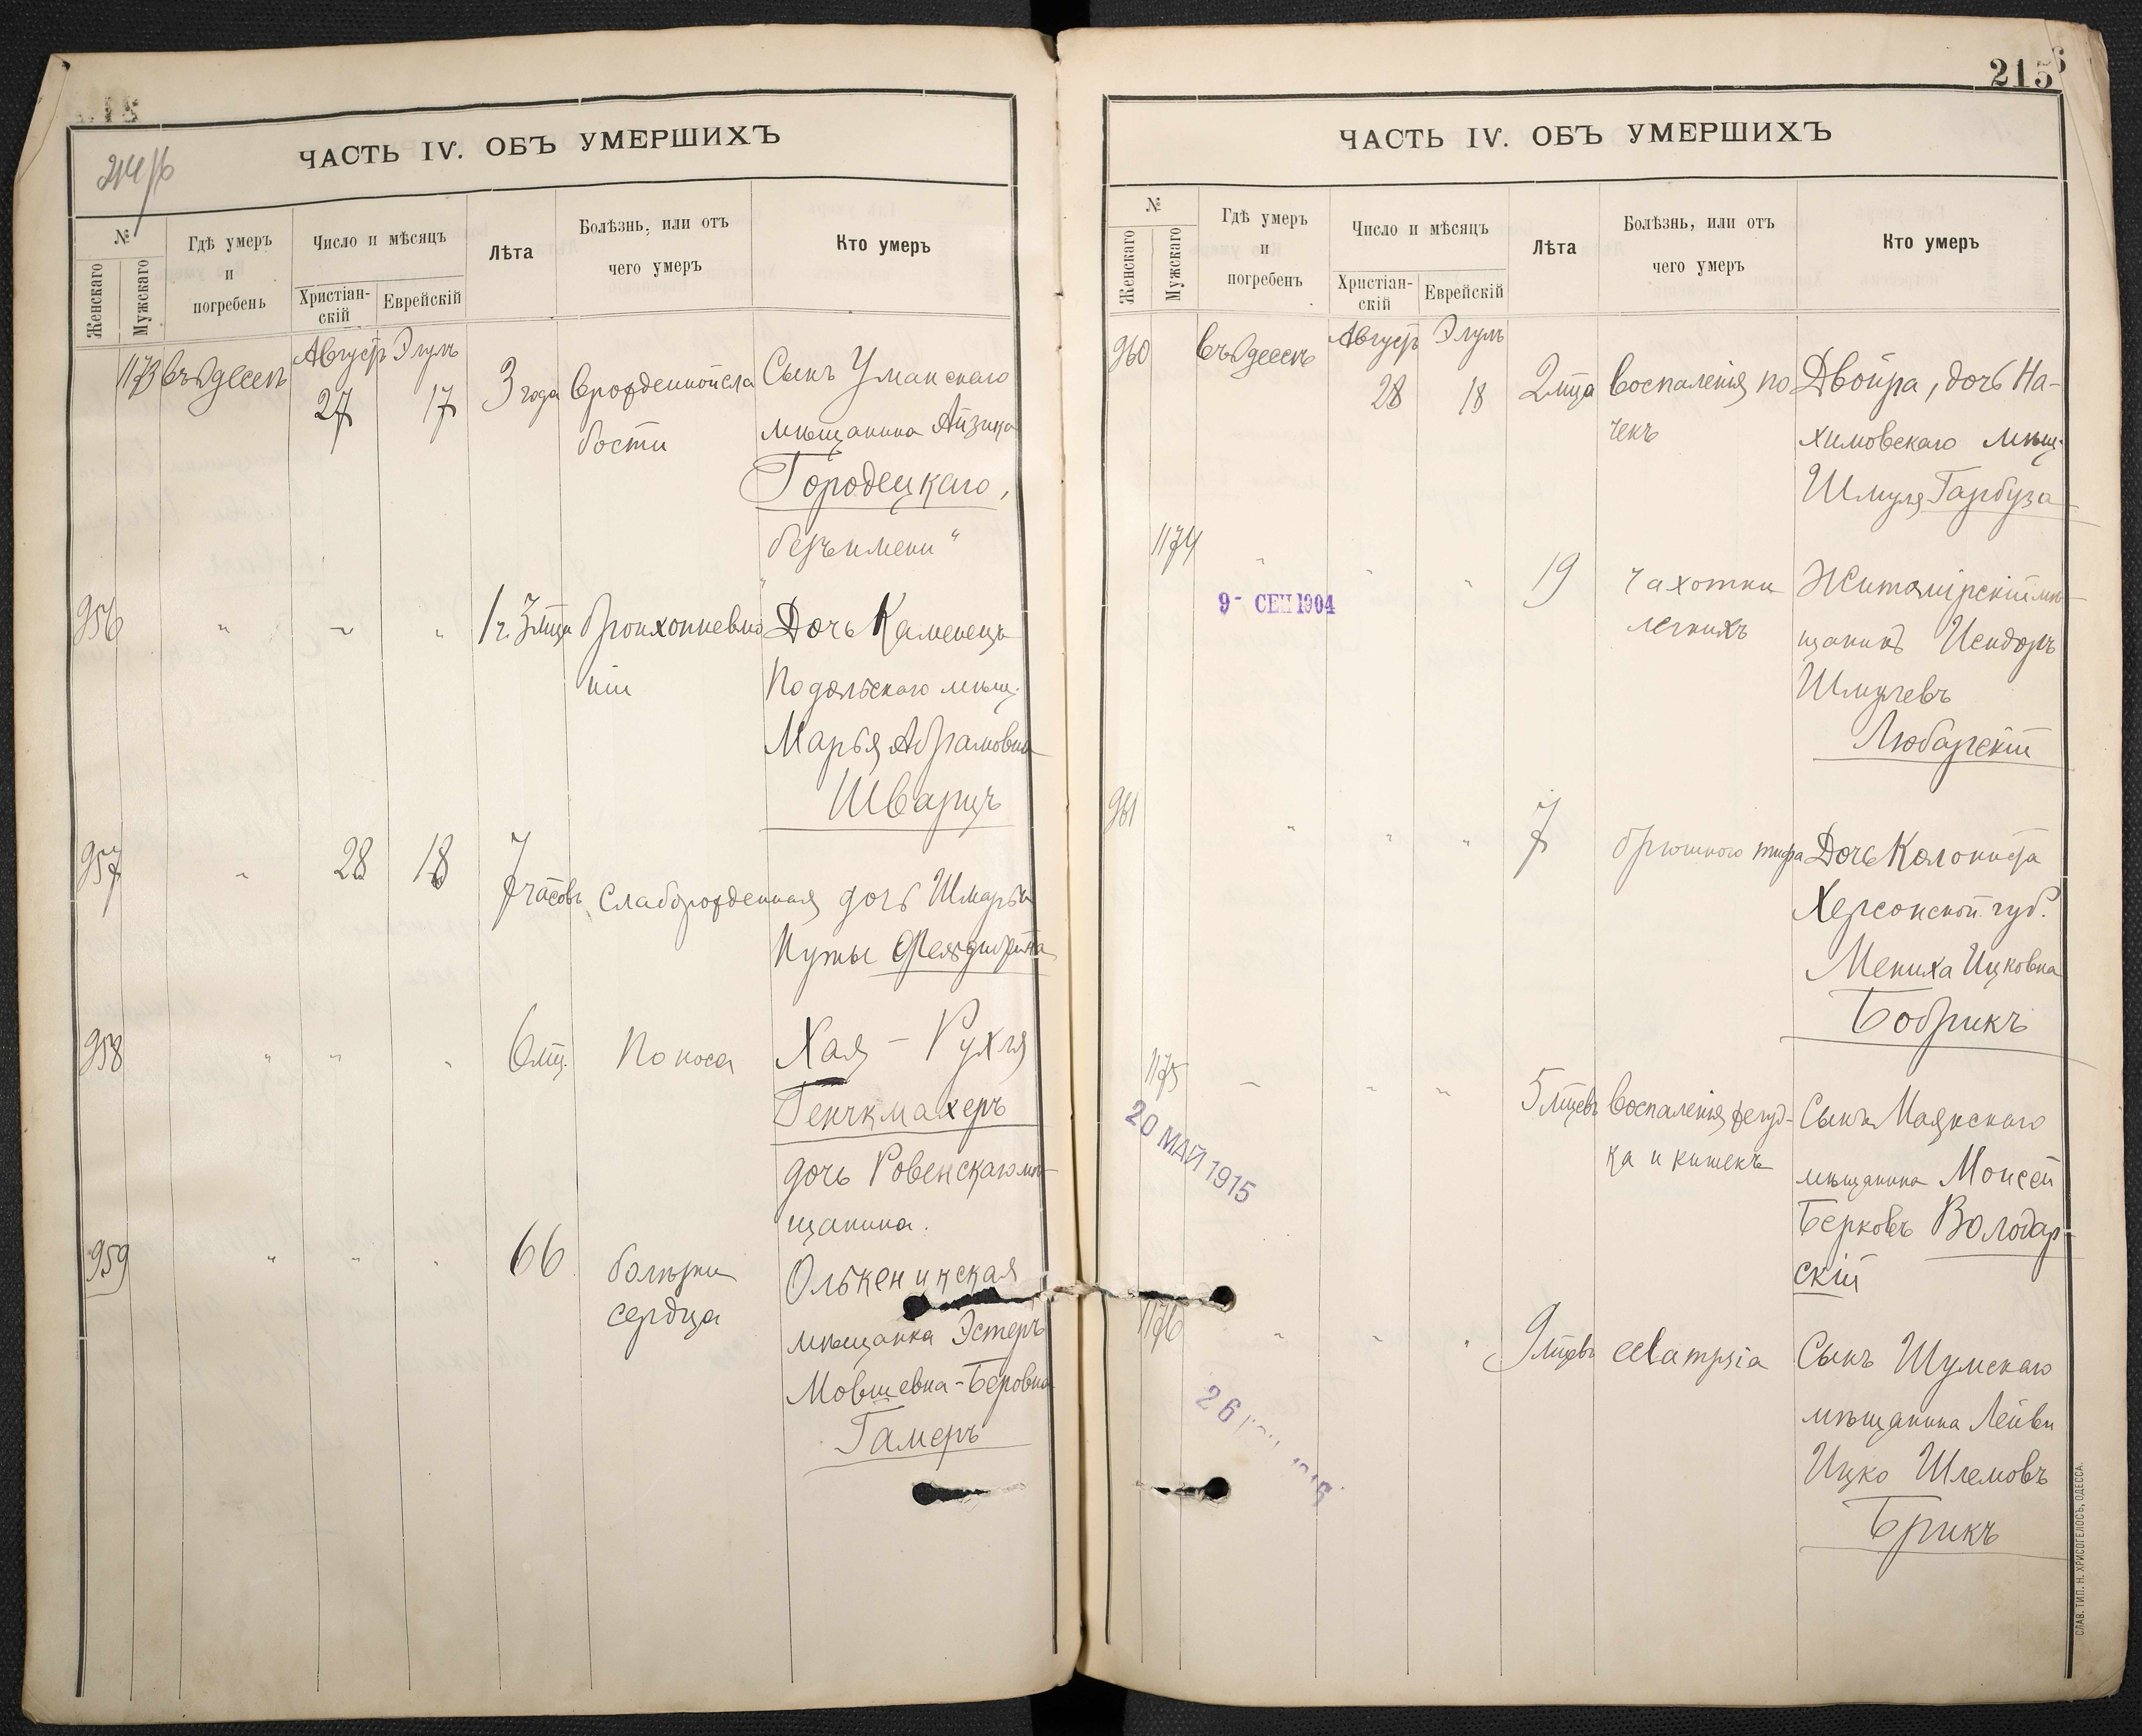 214/б
ЧАСТЬ IV. ОБЪ УМЕРШИХЪ
№
Женскаго
Мужскаго
Гдѣ умеръ
и
погребенъ
Число и мѣсяцъ
Христіан-
скій
Еврейскій
Лѣта
Болѣзнь, или отъ
чего умеръ
Кто умеръ
1173 въ Одессѣ Август 27 Элулъ 17 3 года врожденной сла
бости
Сынъ Уманскаго
мѣщанина Айзика
Городецкаго,
безъ имени "
956 " " " 1 г. 3 мца бронхопневмо
ніи
Дочь Каменецъ
Подольскаго мѣщ.
Марья Абрамовна
Шварцъ
957 " 28 18 7 часовъ Слаборожденная дочь Шмарьи
Нуты
958 " " " 6 мц. Поноса Хая - Рухля
Генчкмахеръ
дочь Ровенскаго мѣ-
щанина.
959 " " " 66 болѣзни
сердца
Олькеникская
мѣщанка Эстеръ
Мовшевна-Беровна
Гамеръ
215
6
ЧАСТЬ IV. ОБЪ УМЕРШИХЪ
№
Женскаго
Мужскаго
Гдѣ умеръ
и
погребенъ
Число и мѣсяцъ
Христіан-
скій
Еврейскій
Лѣта
Болѣзнь, или отъ
чего умеръ
Кто умеръ
960 въ Одессѣ Август 28 Элулъ 18 2 мца воспаленія по
чекъ
Двойра, дочь На-
химовскаго мѣщ.
Шмуля Гарбуза
1174 " " " 19 чахотки
легкихъ
Житомірскій мѣ-
щанинъ Исидоръ
Шмулевъ
Любарскій
9- СЕН 1904
961 " " " 7 брюшного тифа Дочь Колониста
Херсонской губ.
Мениха Ицковна
Бобрикъ
1175 " " " 5 мцевъ воспаленія желуд-
ка и кишекъ
Сынъ Маякскаго
мѣщанина Моисей
Берковъ Володар-
скій
20 МАЙ 1915
1176 " " " 9 мцевъ eclampsia Сынъ Шумскаго
мѣщанина Лейви
Ицко Шлемовъ
Брикъ
26
СЛАВ. ТИП. Н. ХРИСОГЕЛОСЪ, ОДЕССА.